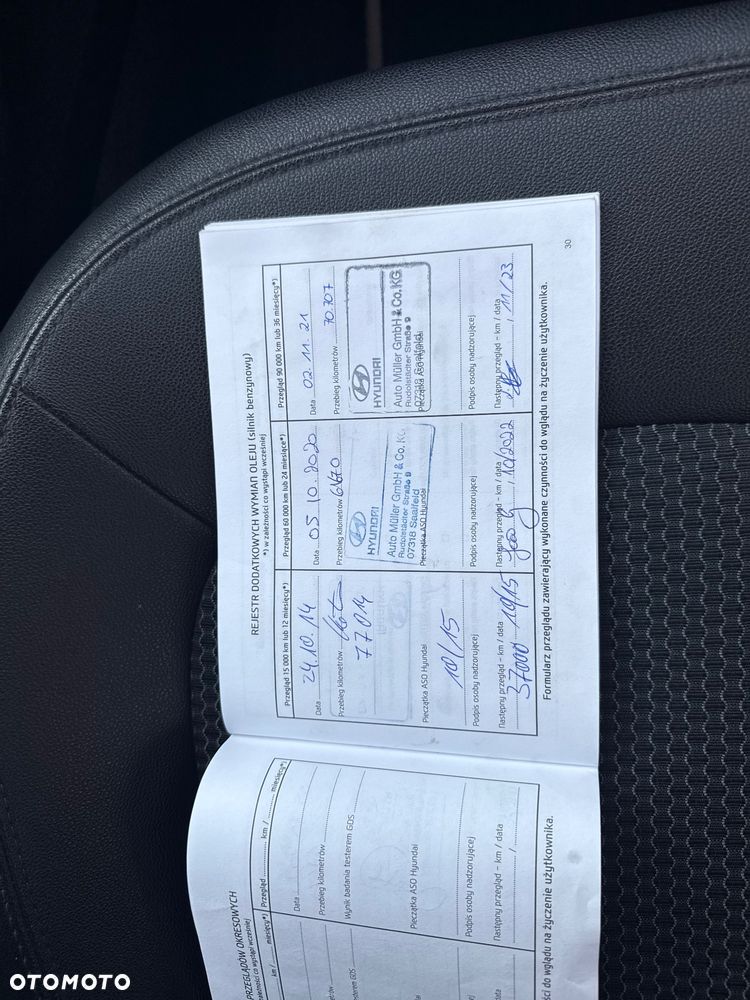 REJESTR DODATKOWYCH WYMIAN OLEJU (silnik benzynowy)
*) w zależności co wystąpi wcześniej
Przegląd 15 000 km lub 12 miesięcy*)
Data 24.10.14
Przebieg kilometrów
77014
Pieczątka ASO Hyundai
10/15
Podpis osoby nadzorującej
Następny przegląd – km / data
37000 10/15
Przegląd 60 000 km lub 24 miesiące*)
Data 05 10. 2020
Przebieg kilometrów 61670
HYUNDAI
Auto Müller GmbH & Co. KG
Rudolstädter Straße 9
07318 Saalfeld
Pieczątka ASO Hyundai
Podpis osoby nadzorującej
Następny przegląd – km / data
, 10/2022
Przegląd 90 000 km lub 36 miesięcy*)
Data 02. 11. 21
Przebieg kilometrów 70.707
HYUNDAI
Auto Müller GmbH & Co. KG
Rudolstädter Straße 9
07318 Saalfeld
Pieczątka ASO Hyundai
Podpis osoby nadzorującej
Następny przegląd – km / data
, 11/23
Formularz przeglądu zawierający wykonane czynności do wglądu na życzenie użytkownika.
30
PRZEGLĄDÓW OKRESOWYCH
co wystąpi wcześniej
km / miesięcy*)
GDS
Podpis osoby nadzorującej
Następny przegląd – km / data
Przegląd km / miesięcy*)
Data
Przebieg kilometrów
Wynik badania testerem GDS
Pieczątka ASO Hyundai
Podpis osoby nadzorującej
Następny przegląd – km / data
/
do wglądu na życzenie użytkownika.
OTOMOTO